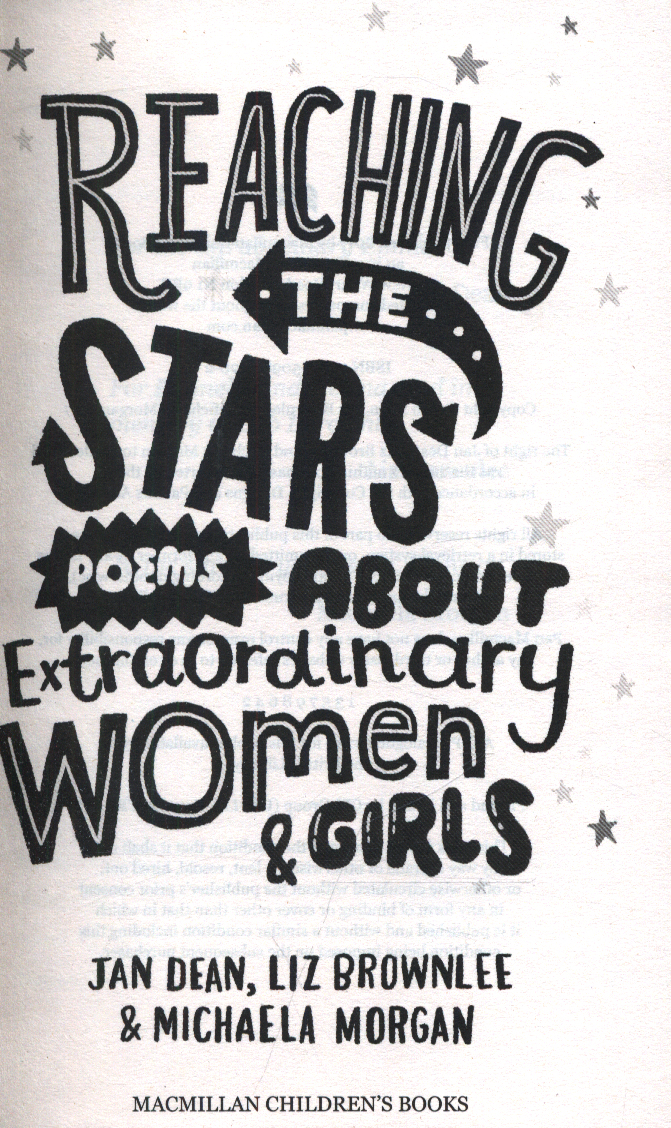 REACHING
THE
STARS
POEMS ABOUT
Extraordinary
Women
& GIRLS
JAN DEAN, LIZ BROWNLEE
& MICHAELA MORGAN
MACMILLAN CHILDREN'S BOOKS